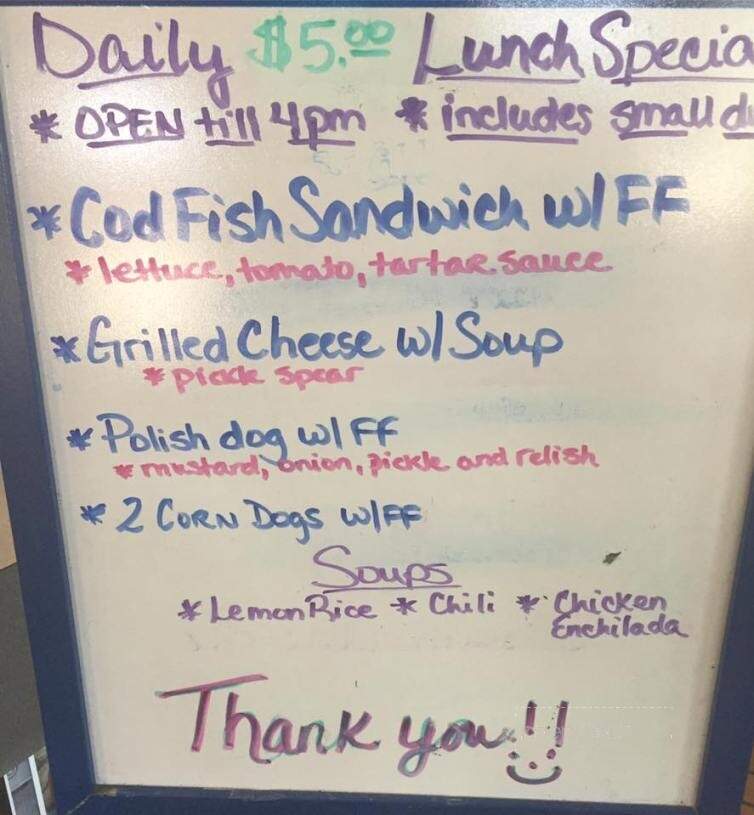 Daily $5.00 Lunch Specia
* OPEN till 4pm * includes small d
* Cod Fish Sandwich w/ FF
* lettuce, tomato, tartar sauce
* Grilled Cheese w/ Soup
* pickle spear
* Polish dog w/ FF
* mustard, onion, pickle and relish
* 2 CORN DOGS w/FF
Soups
* Lemon Rice * Chili * Chicken
Enchilada
Thank you!!